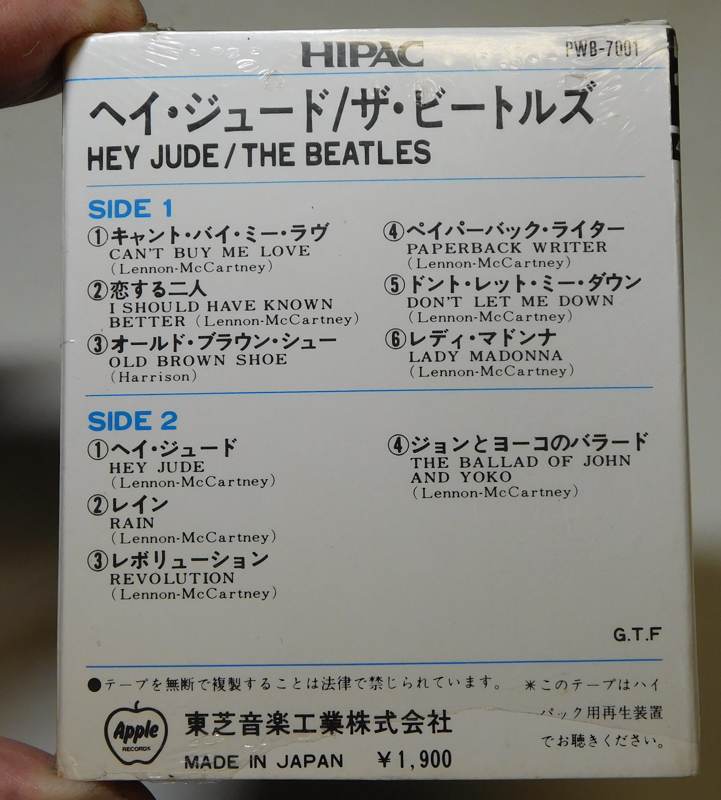 HIPAC
PWB-7001
ヘイ・ジュード/ザ・ビートルズ
HEY JUDE/THE BEATLES
SIDE 1
①キャント・バイ・ミー・ラヴ
CAN'T BUY ME LOVE
(Lennon-McCartney)
②恋する二人
I SHOULD HAVE KNOWN
BETTER (Lennon-McCartney)
③オールド・ブラウン・シュー
OLD BROWN SHOE
(Harrison)
④ペイパーバック・ライター
PAPERBACK WRITER
(Lennon-McCartney)
⑤ドント・レット・ミー・ダウン
DON'T LET ME DOWN
(Lennon-McCartney)
⑥レディ・マドンナ
LADY MADONNA
(Lennon-McCartney)
SIDE 2
①ヘイ・ジュード
HEY JUDE
(Lennon-McCartney)
②レイン
RAIN
(Lennon-McCartney)
③レボリューション
REVOLUTION
(Lennon-McCartney)
④ジョンとヨーコのバラード
THE BALLAD OF JOHN
AND YOKO
(Lennon-McCartney)
G.T.F
●テープを無断で複製することは法律で禁じられています。
＊このテープはハイ
パック用再生装置
でお聴きください。
Apple
RECORDS
東芝音楽工業株式会社
MADE IN JAPAN ¥1,900